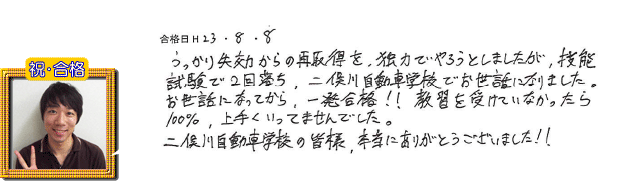 合格日 H23・8・8
祝・合格
うっかり失効からの再取得を、独力でやろうとしましたが、技能
試験で2回落ち、二俣川自動車学校でお世話になりました。
お世話になってから、一発合格!! 教習を受けていなかったら
100%、上手くいってませんでした。
二俣川自動車学校の皆様、本当にありがとうございました!!